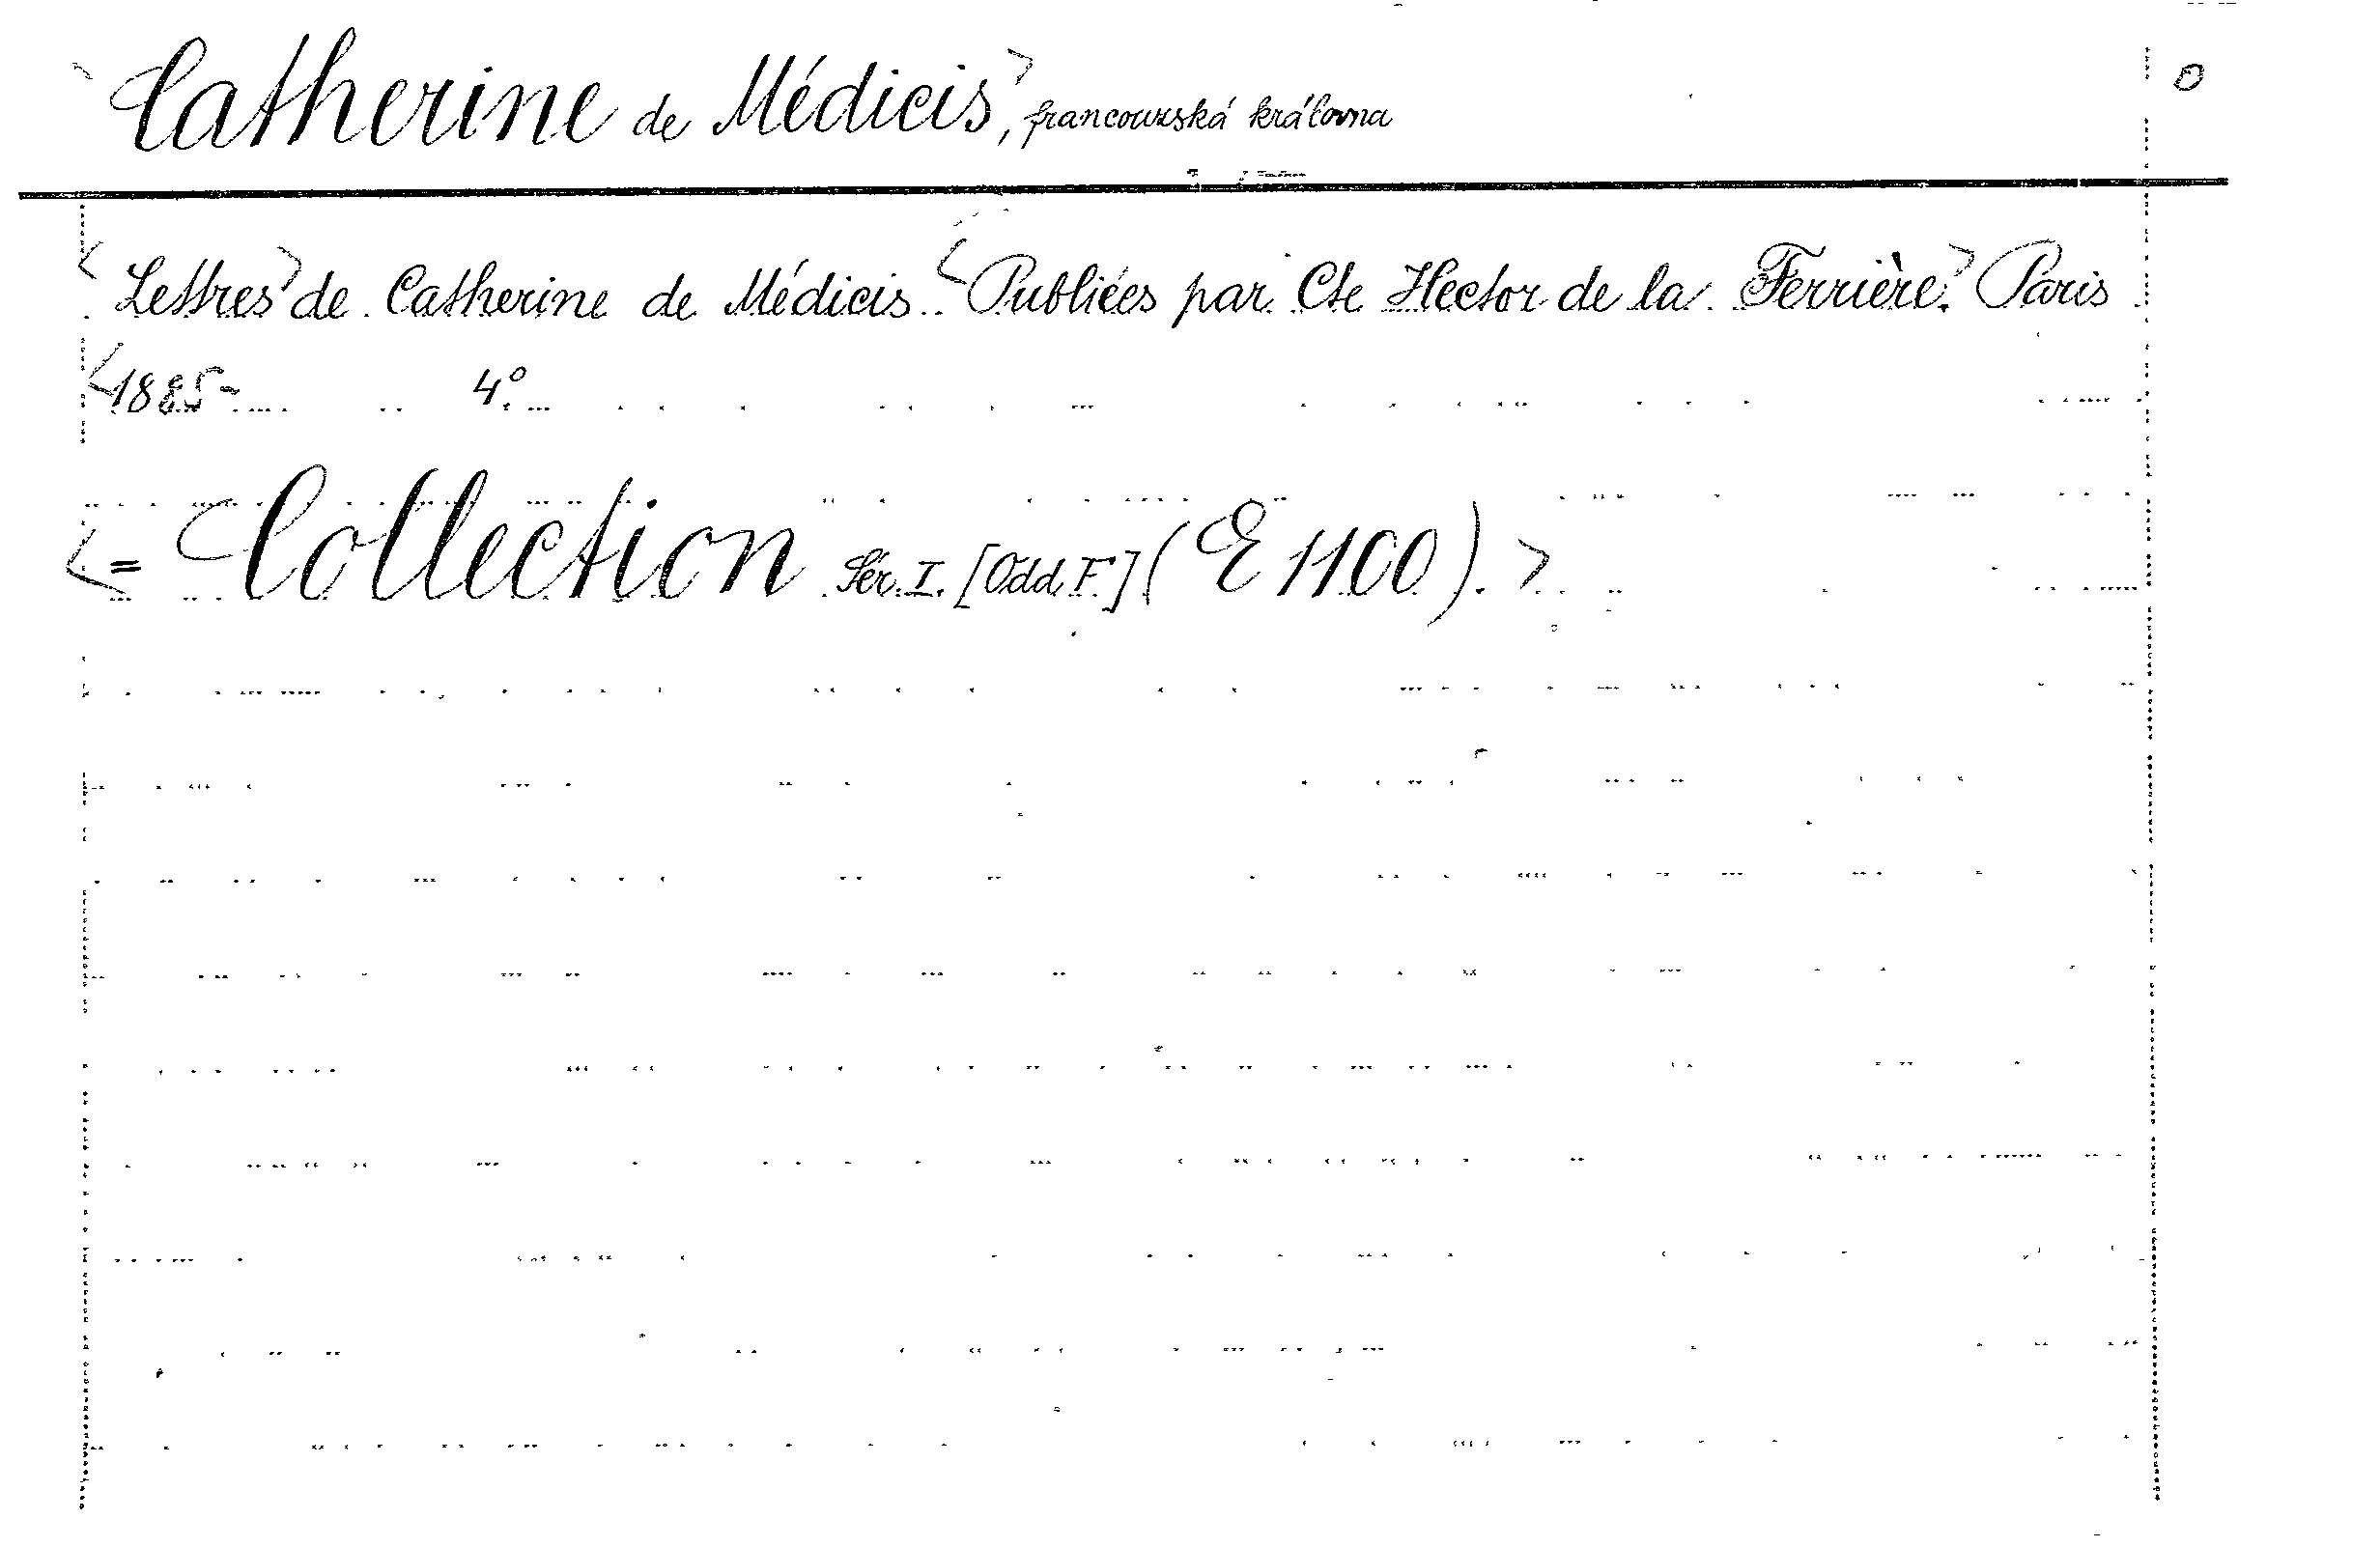 < Catherine de Médicis>, francouzská králova O
<Lettres> de Catherine de Médicis. <Publiées par Cte Hector de la Ferrière>. Paris
<1885- 4°.
<= Collection Sér. I. [Odd. F.] (E 1100). >